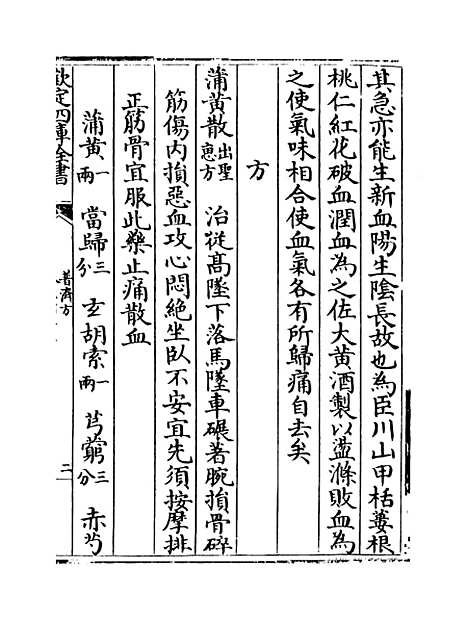 其急亦能生新血陽生陰長故也為臣川山甲栝蔞根
桃仁紅花破血潤血為之佐大黃酒製以盪滌敗血為
之使氣味相合使血氣各有所歸痛自去矣
方
蒲黃散出聖惠方 治從髙墜下落馬墜車碾著腕損骨碎
筋傷内損惡血攻心悶絶坐臥不安宜先須按摩排
正筋骨宜服此藥止痛散血
蒲黃一兩 當歸三分 玄胡索一兩 芎藭三分 赤芍
欽定四庫全書
普濟方
二